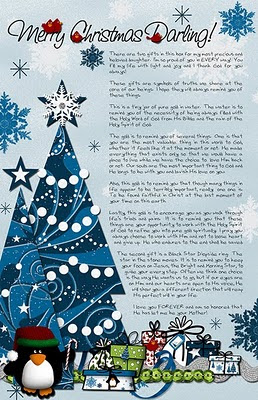 Merry Christmas Darling!
There are two gifts in this box for my most precious and
beloved daughter. I'm so proud of you in EVERY way! You
fill my life with light and joy and I thank God for you
always!
These gifts are symbols of truths we share at the
core of our beings. I hope they will always remind you of
these things.
This is a tiny jar of pure gold in water. The water is to
remind you of the necessity of being always filled with
the Holy Word of God from His Bible and the rivers of the
Holy Spirit of God.
The gold is to remind you of several things. One is that
you are the most valuable thing in this world to God,
whether it feels like it at the moment or not. He made
everything that exists only so that we would have a
place to live while we have the choice to love Him back
or not. Our souls are the most important thing to God and
He longs to be with you and lavish His love on you.
Also, this gold is to remind you that though many things
in life appear to be terribly important, really, only one is.
To be found faithful in Christ at the last moment of
your time on this earth.
Lastly this gold is to encourage you as you walk through
life's trials and pains. It is to remind you that these
things are your opportunity to work with the Holy Spirit
of God to refine you into pure gold spiritually. I pray you
always choose to work with Him and not to loose heart
and give up. He who endures to the end shall be saved.
The second gift is a Black Star Diopside ring. The
star in the stone moves. It is to remind you to keep
your focus on Jesus, the Bright and Morning Star, to
guide your every step. Often we think one choice
is the way He wants us to go, but if our eyes are
on Him and our hearts are open to His voice, He
will show us a different direction that will mean
His perfect will in your life.
I love you FOREVER and am so honored that
He has let me be your Mother!